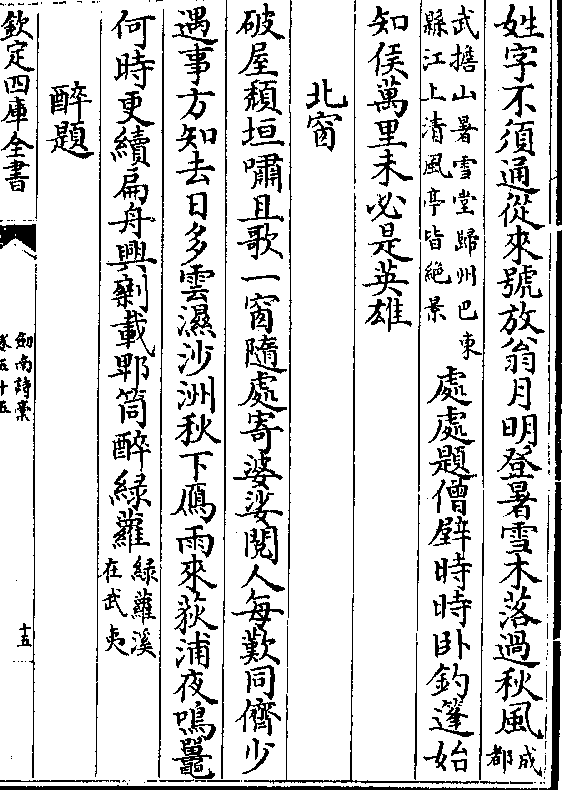 姓字不須通從來號放翁月明登暑雪木落過秋風成都
武擔山暑雪堂歸州巴東縣江上清風亭皆絶景處處題僧壁時時卧釣篷始
知侯萬里未必是英雄
北窗
破屋頹垣嘯且歌一窗隨處寄婆娑閱人每歎同儕少
遇事方知去日多雲濕沙洲秋下鴈雨來荻浦夜鳴鼉
何時更續扁舟興剰載郫筒醉緑蘿緑蘿溪在武夷
醉題
欽定四庫全書
劍南詩稾
卷五十五
十五